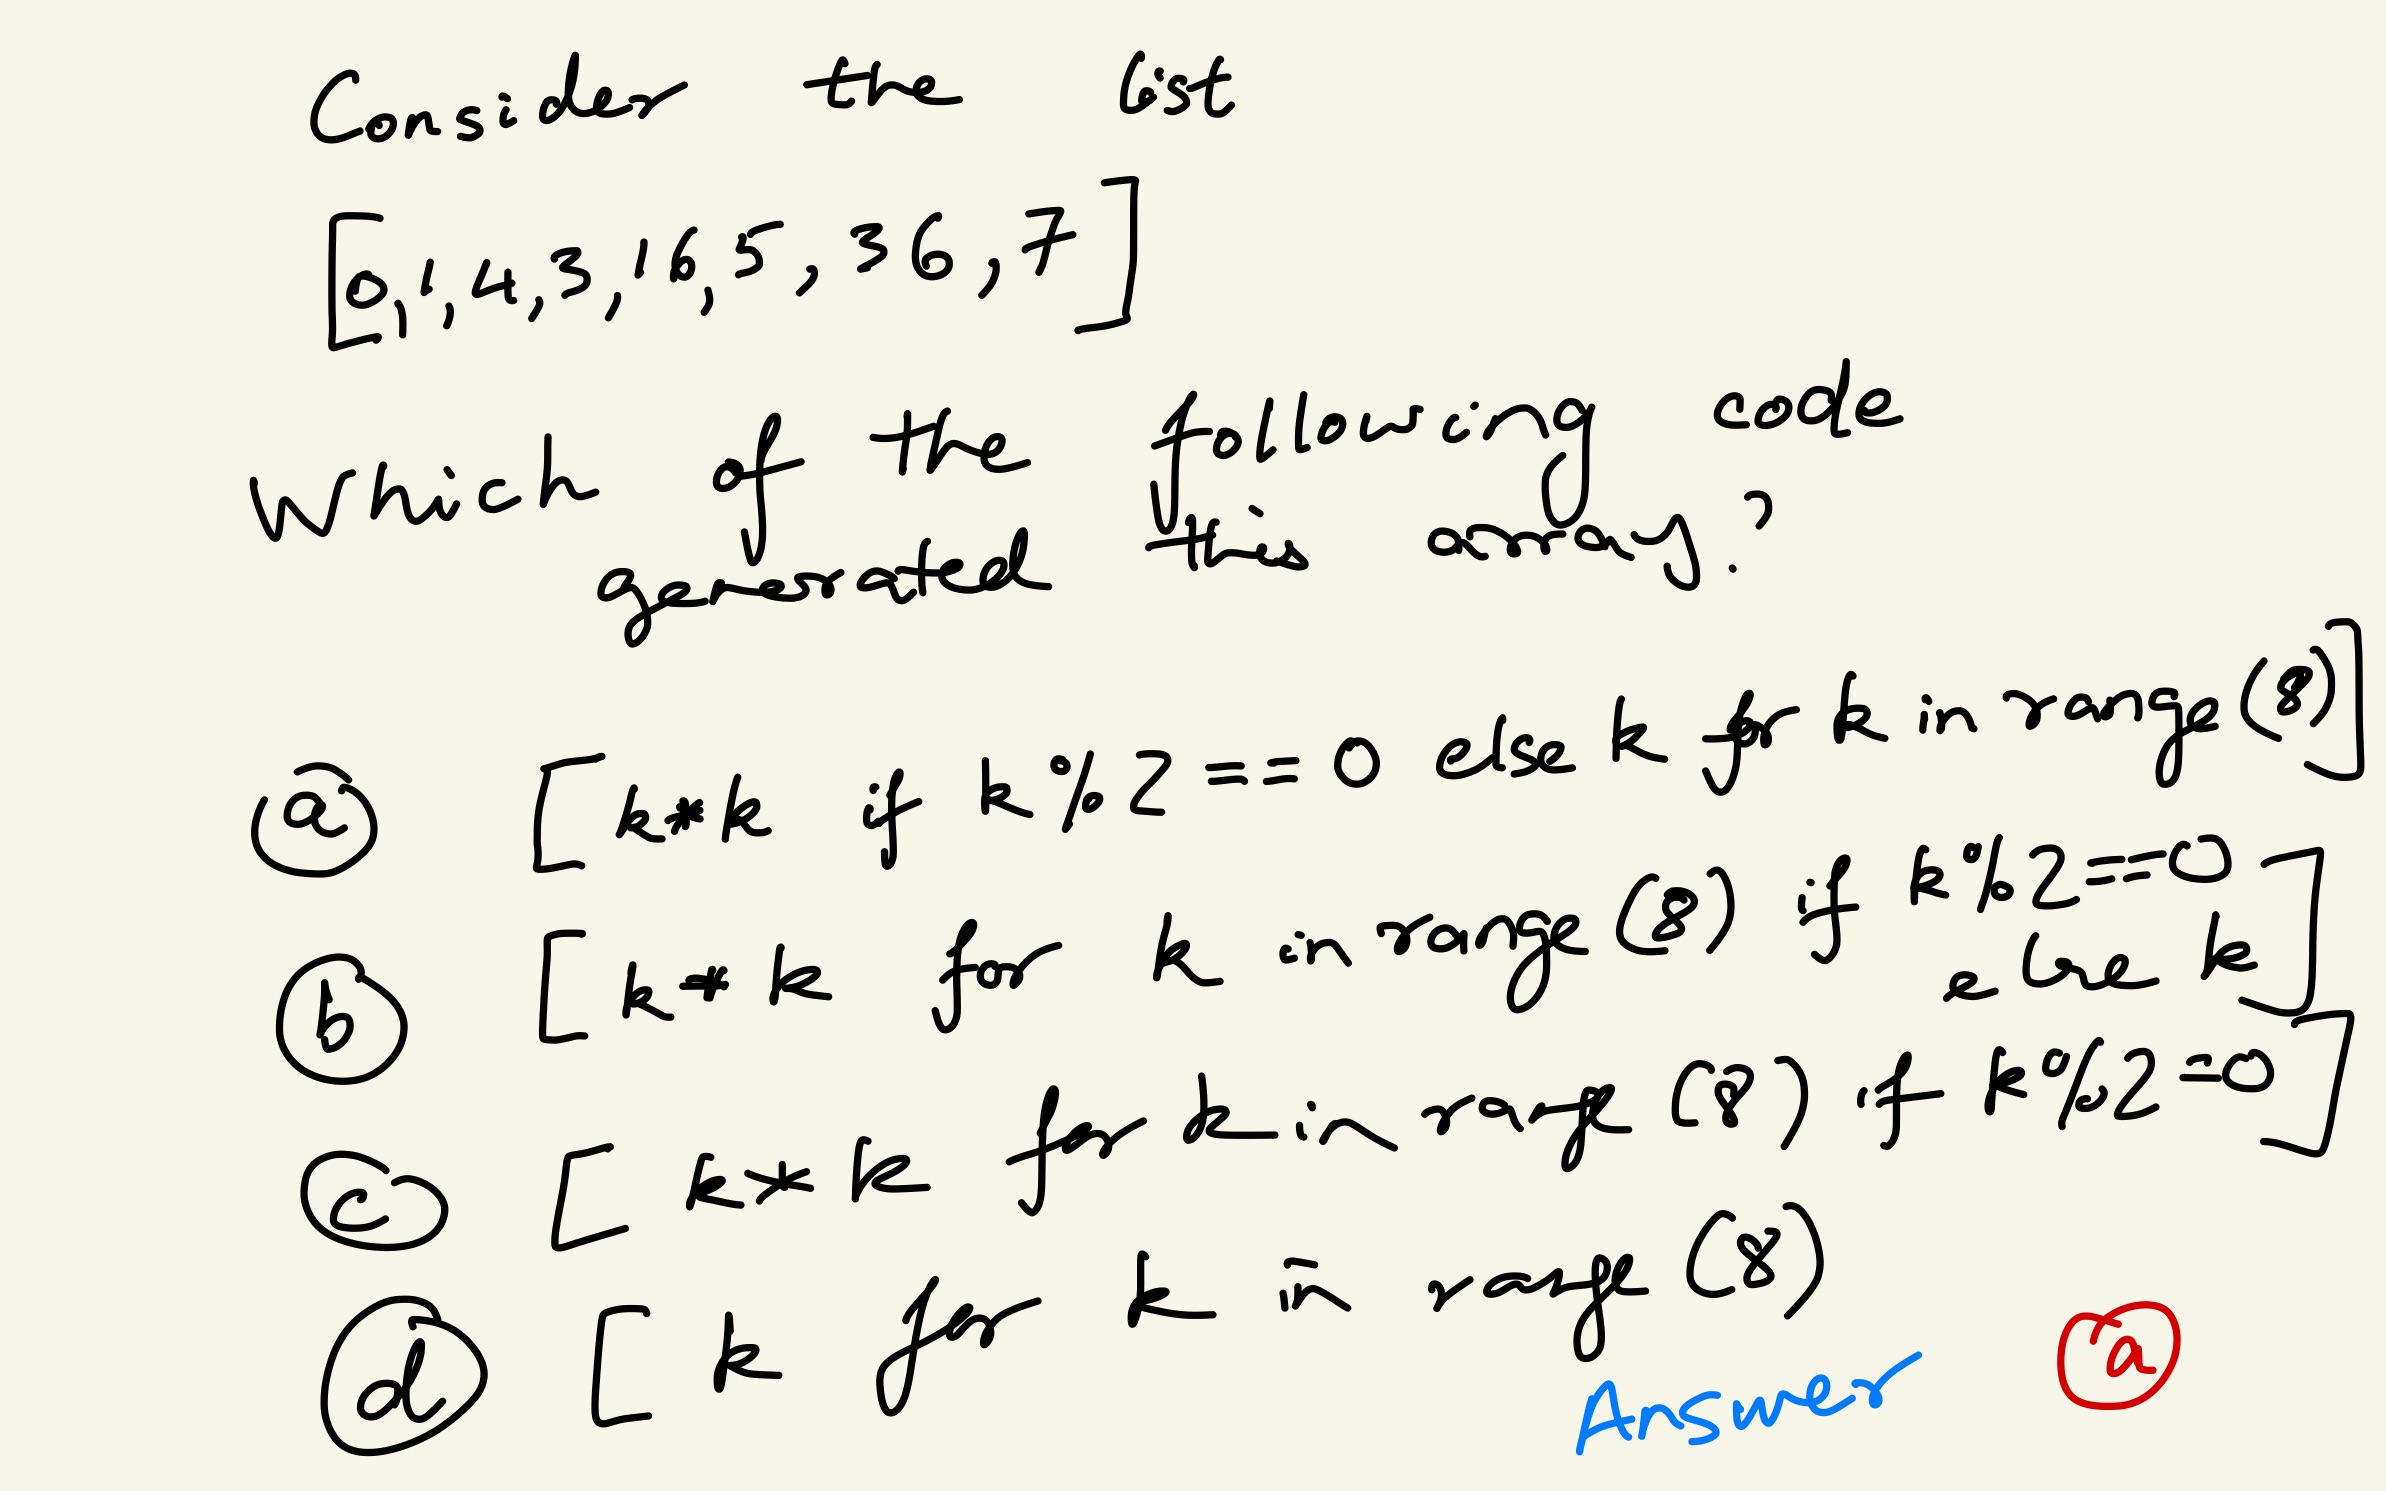 Consider the list
[0,1,4,3,16,5,36,7]
Which of the following code
generated this array?
a [k*k if k%2==0 else k for k in range(8)]
b [k*k for k in range(8) if k%2==0
else k]
c [k*k for k in range(8) if k%2=0]
d [k for k in range(8)
Answer a